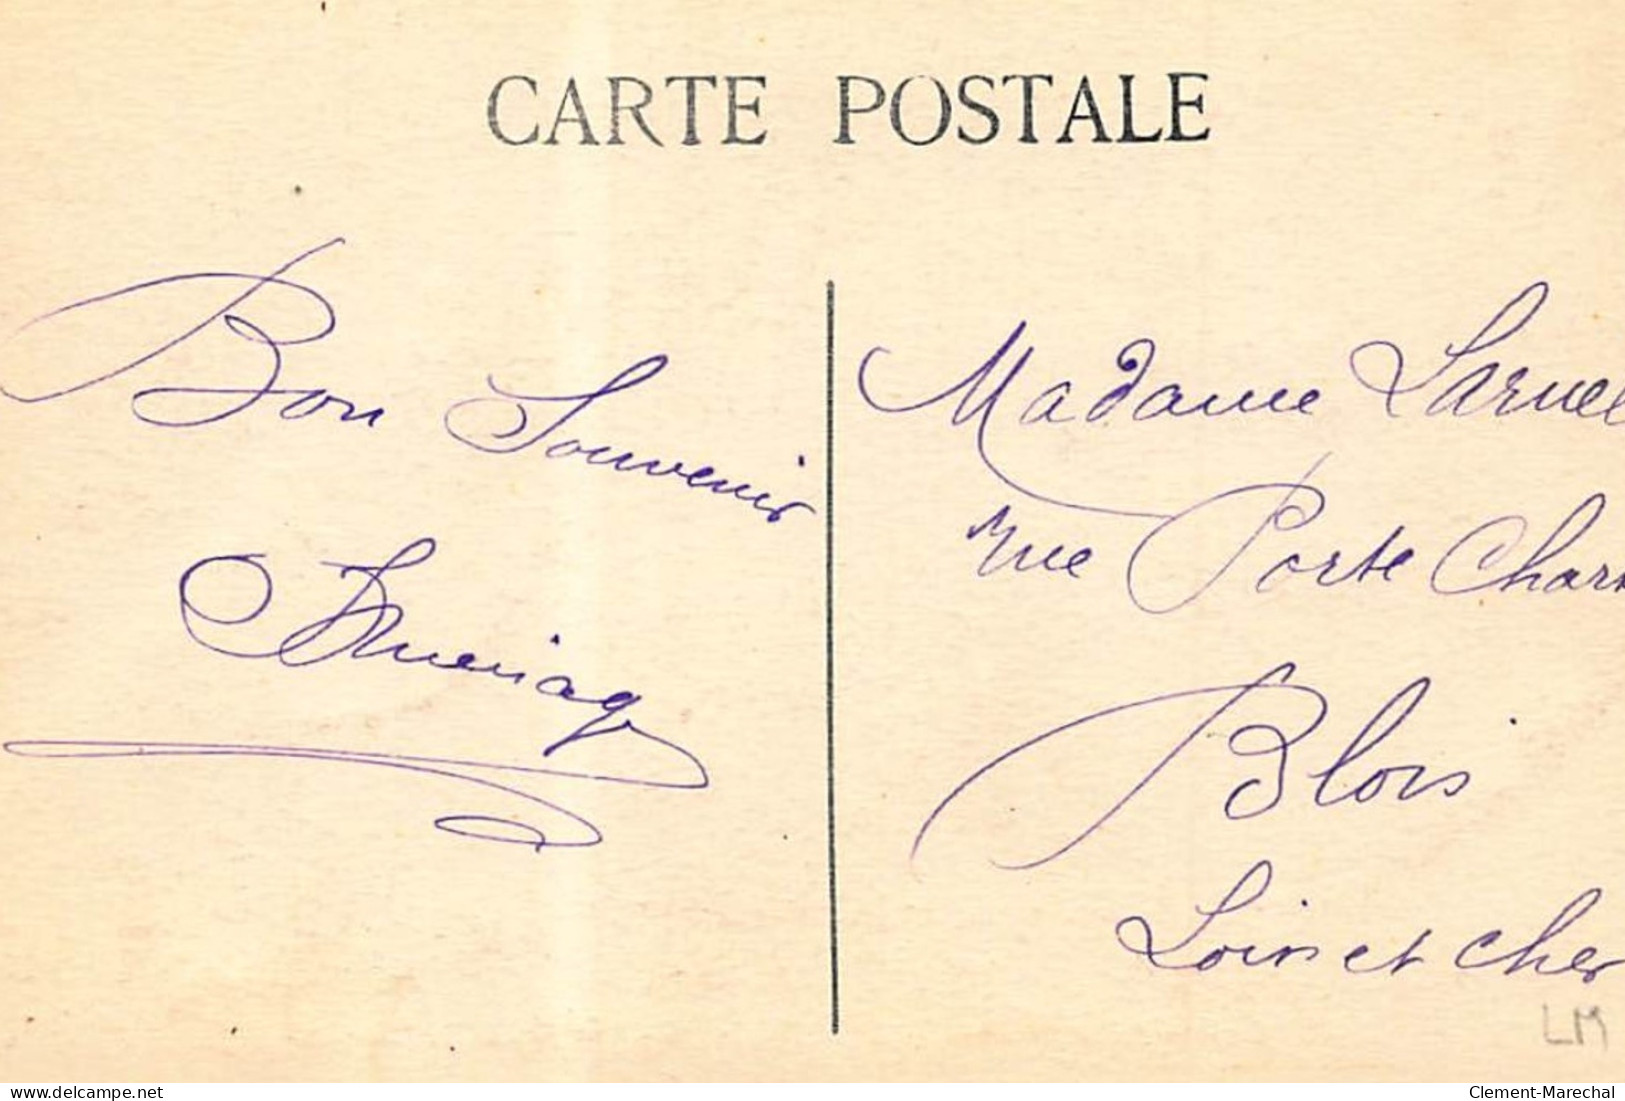 CARTE POSTALE
Bon Souvenir
Madame
rue Porte
Blois
Loir et Cher
LM
www.delcampe.net
Clement-Marechal